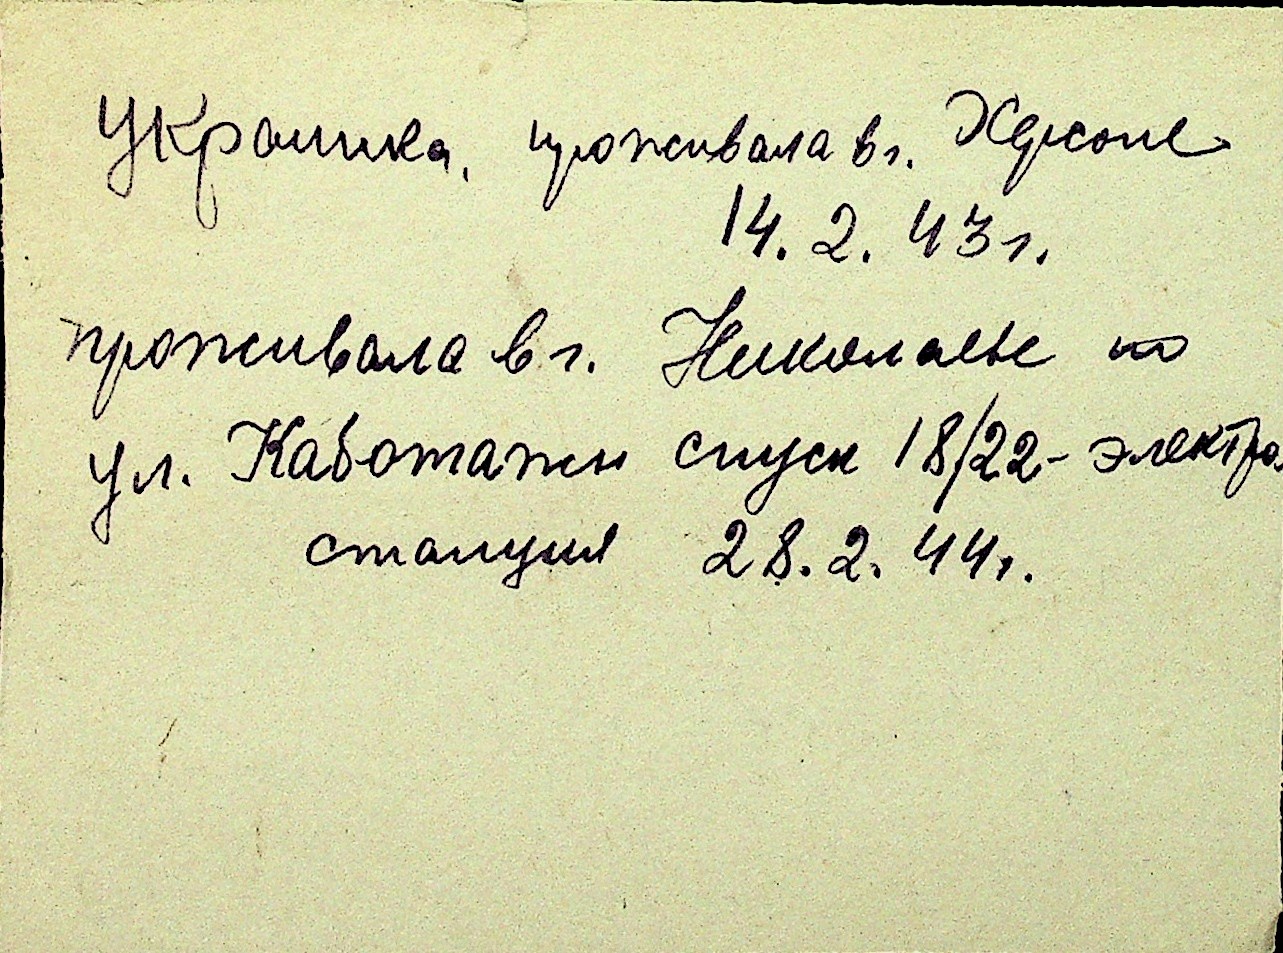 Украинка, проживала в г. Херсоне
14.2.43г.
проживала в г. Николаеве по
ул. Каботажн спуск 18/22 - электро
станция 28.2.44г.